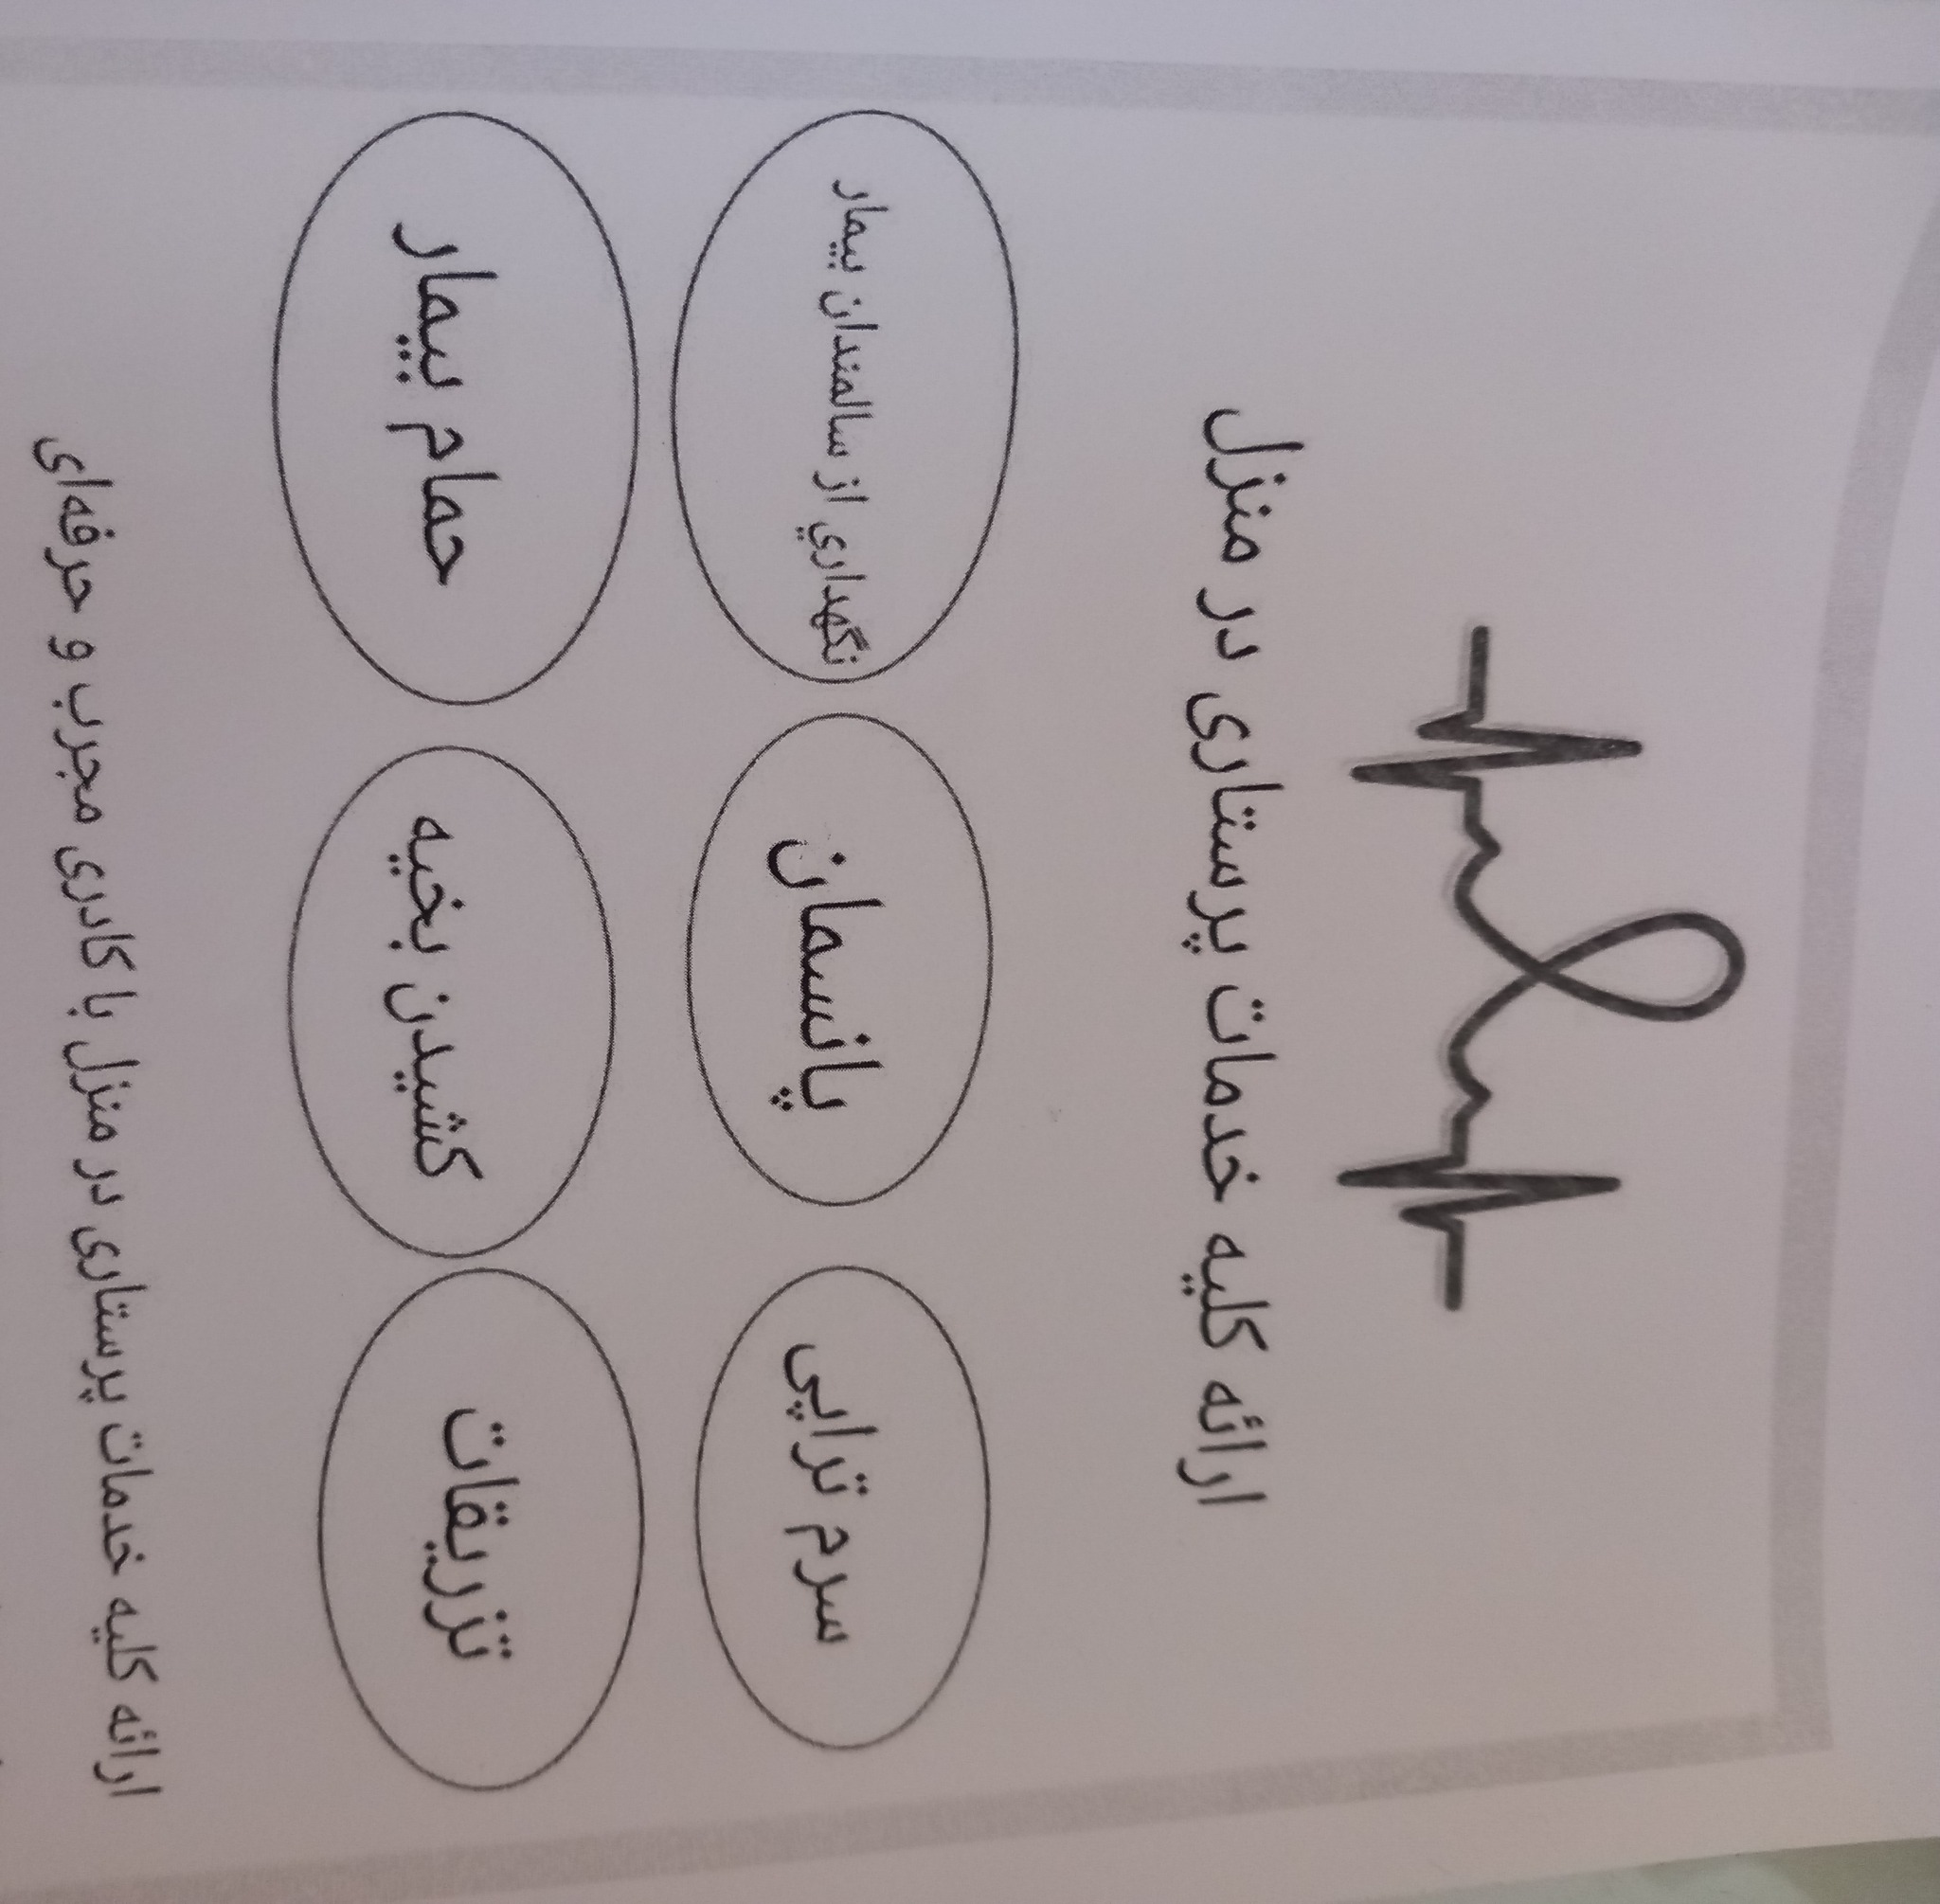 ارائه کلیه خدمات پرستاری در منزل
سرم تراپی
پانسمان
نگهداري از سالمندان بیمار
تزریقات
کشیدن بخیه
حمام بیمار
ارائه کلیه خدمات پرستاری در منزل با کادری مجرب و حرفه‌ای